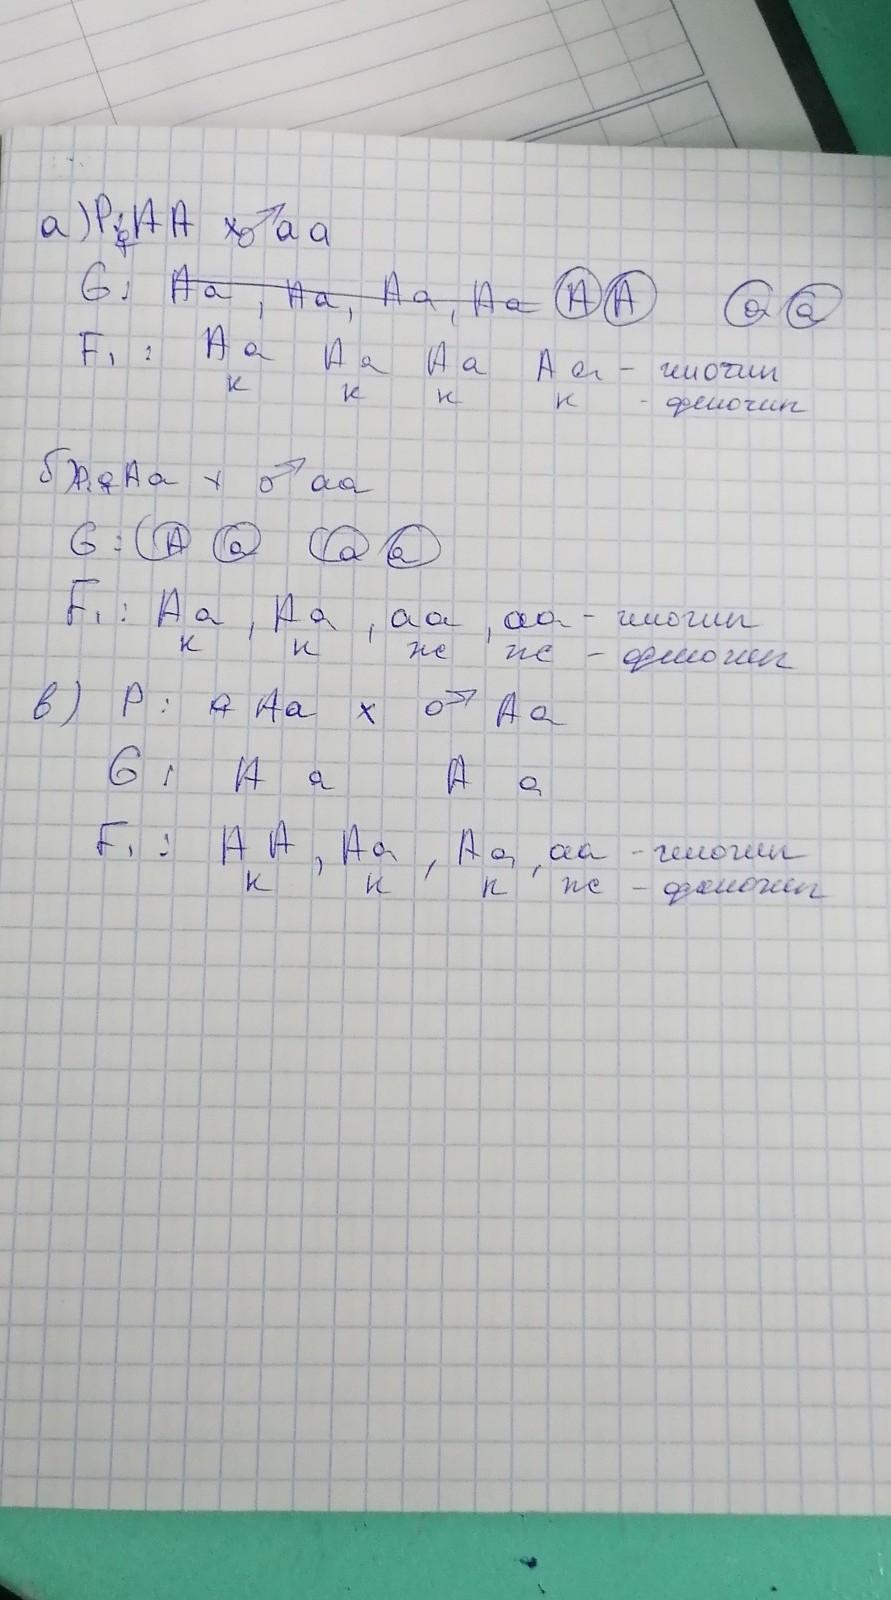 а) P: ♀ AA x ♂ aa
G: Aa, Aa, Aa, Aa A A a a
F₁: Aa Aa Aa Aa - генотип
к к к к - фенотип
б) P: ♀ Aa x ♂ aa
G: A a a a
F₁: Aa, Aa, aa, aa - генотип
к к ж ж - фенотип
в) P: ♀ Aa x ♂ Aa
G: A a A a
F₁: AA, Aa, Aa, aa - генотип
к к к ж - фенотип